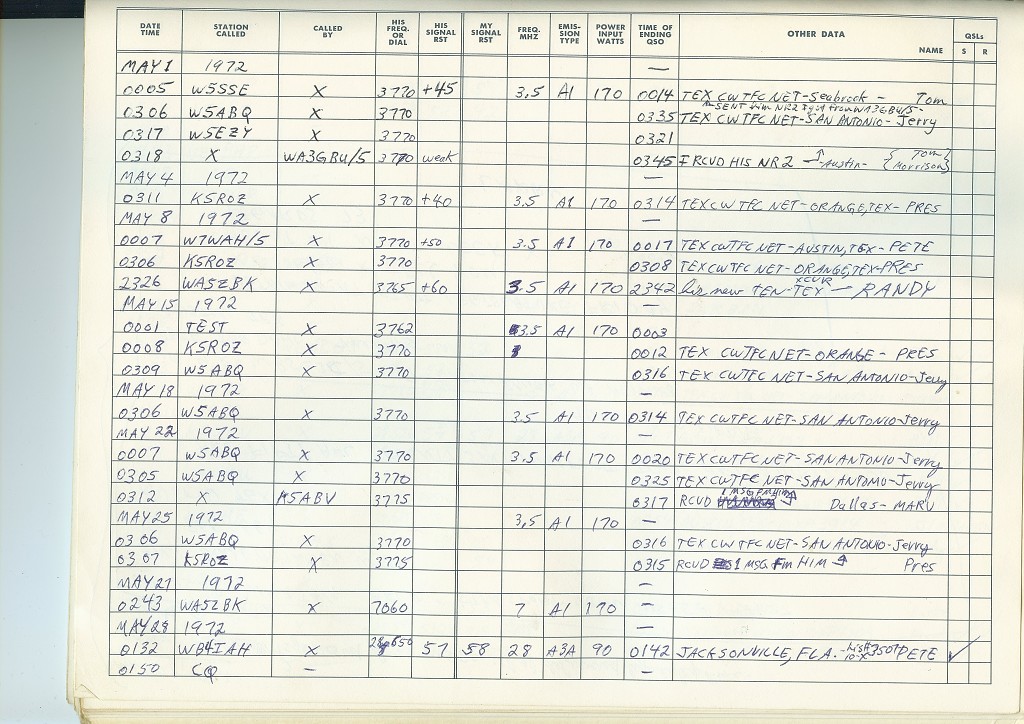 DATE TIME STATION CALLED CALLED BY HIS FREQ. OR DIAL HIS SIGNAL RST MY SIGNAL RST FREQ. MHZ EMIS-SION TYPE POWER INPUT WATTS TIME OF ENDING QSO OTHER DATA NAME QSLs S R
MAY 1 1972 —
0005 W5SSE X 3770 +45 3.5 A1 170 0014 TEX CW TFC NET-Seabrook - Tom
SENT him NR2 & got from WA3GBU/5-
0306 W5ABQ X 3770 0335 TEX CW TFC NET-SAN ANTONIO-Jerry
0317 W5EZY X 3770 0321
0318 X WA3GBU/5 3770 weak 0345 I RCVD HIS NR2 Austin- {Tom Morrison}
MAY 4 1972 —
0311 K5ROZ X 3770 +40 3.5 A1 170 0314 TEX CW TFC NET-ORANGE, TEX- PRES
MAY 8 1972 —
0007 W7WAH/5 X 3770 +50 3.5 A1 170 0017 TEX CW TFC NET-AUSTIN, TEX- PETE
0306 K5ROZ X 3770 0308 TEX CW TFC NET-ORANGE, TEX-PRES
2326 WA5ZBK X 3765 +60 3.5 A1 170 2342 his new TEN-TEX XCVR — RANDY
MAY 15 1972 —
0001 TEST X 3762 3.5 A1 170 0003
0008 K5ROZ X 3770 0012 TEX CW TFC NET-ORANGE- PRES
0309 W5ABQ X 3770 0316 TEX CW TFC NET-SAN ANTONIO-Jerry
MAY 18 1972 —
0306 W5ABQ X 3770 3.5 A1 170 0314 TEX CW TFC NET-SAN ANTONIO-Jerry
MAY 22 1972 —
0007 W5ABQ X 3770 3.5 A1 170 0020 TEX CW TFC NET-SAN ANTONIO-Jerry
0305 W5ABQ X 3770 0325 TEX CW TFC NET-SAN ANTONIO-Jerry
0312 X K5ABV 3775 0317 RCVD 1 MSG FM HIM Dallas- MARV
MAY 25 1972 3.5 A1 170 —
0306 W5ABQ X 3770 0316 TEX CW TFC NET-SAN ANTONIO-Jerry
0307 K5ROZ X 3775 0315 RCVD 1 MSG Fm HIM Pres
MAY 27 1972 —
0243 WA5ZBK X 7060 7 A1 170 —
MAY 28 1972 —
0132 WB4IAH X 57 58 28 A3A 90 0142 JACKSONVILLE, FLA. PETE ✓
0150 CQ — —